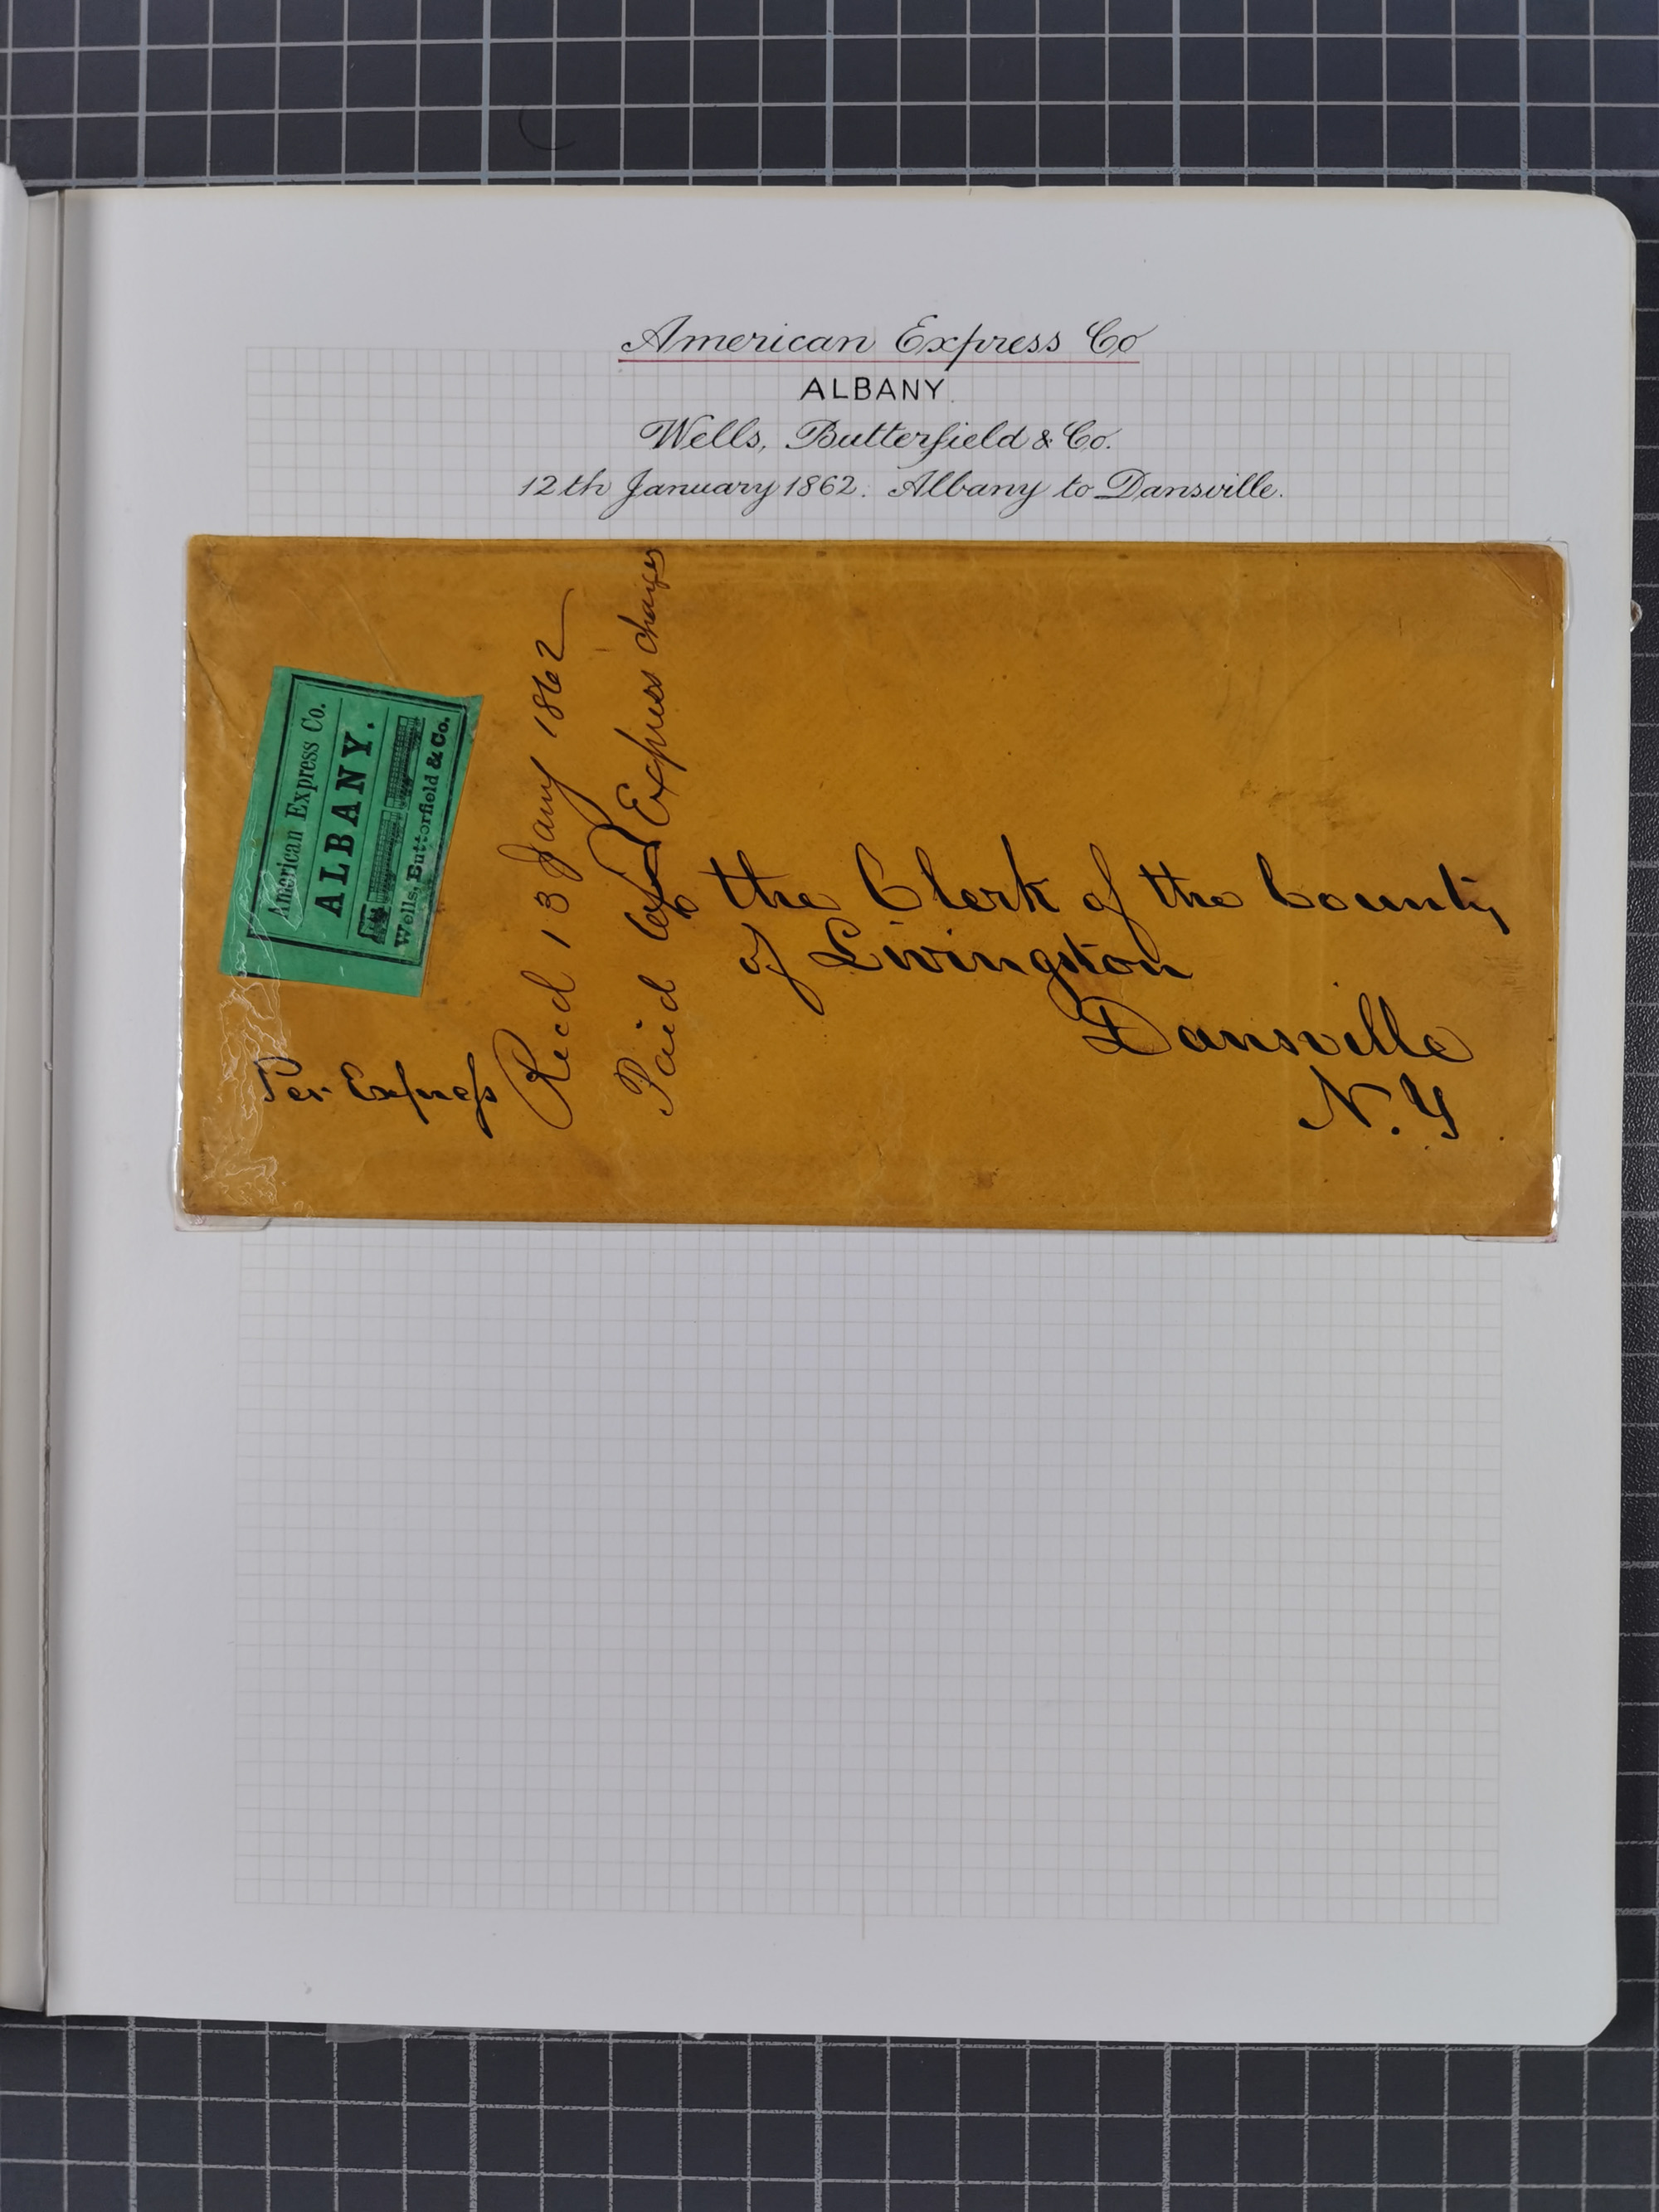 American Express Co
ALBANY.
Wells, Butterfield & Co.
12th January 1862. Albany to Dansville.
American Express Co.
ALBANY.
Wells, Butterfield & Co.
Recd 13 Jany 1862
Paid Express charges
To the Clerk of the County
of Livingston
Dansville
N.Y.
Per Express